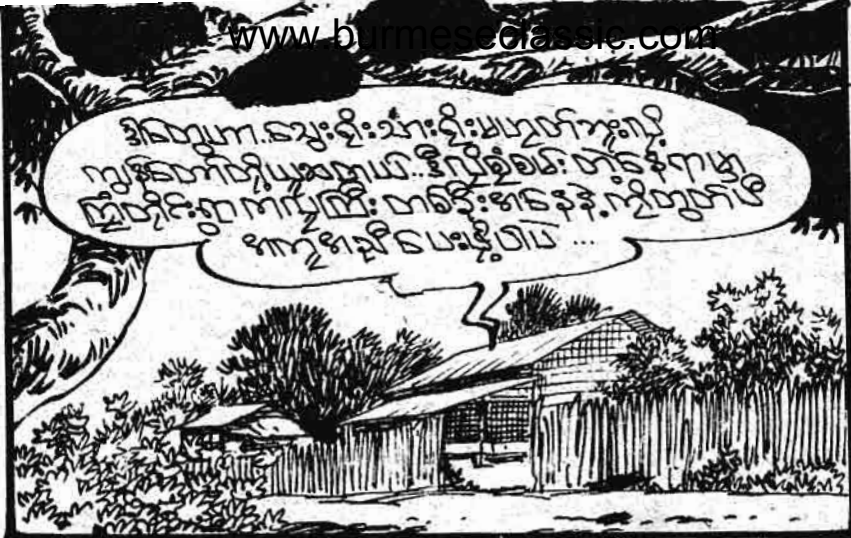 www.burmeseclassic.com
ဒါတွေဟာ..သွေးရိုးသားရိုးမဟုတ်ဘူးလို့
ကျွန်တော်တို့ယူဆတယ်..ဒီလိုစုံစမ်းတဲ့နေရာမှာ
ကြံတိုင်းရွာကလူကြီးတစ်ဦးအနေနဲ့ကိုထွတ်ပီ
အကူအညီပေးဖို့ပါပဲ...